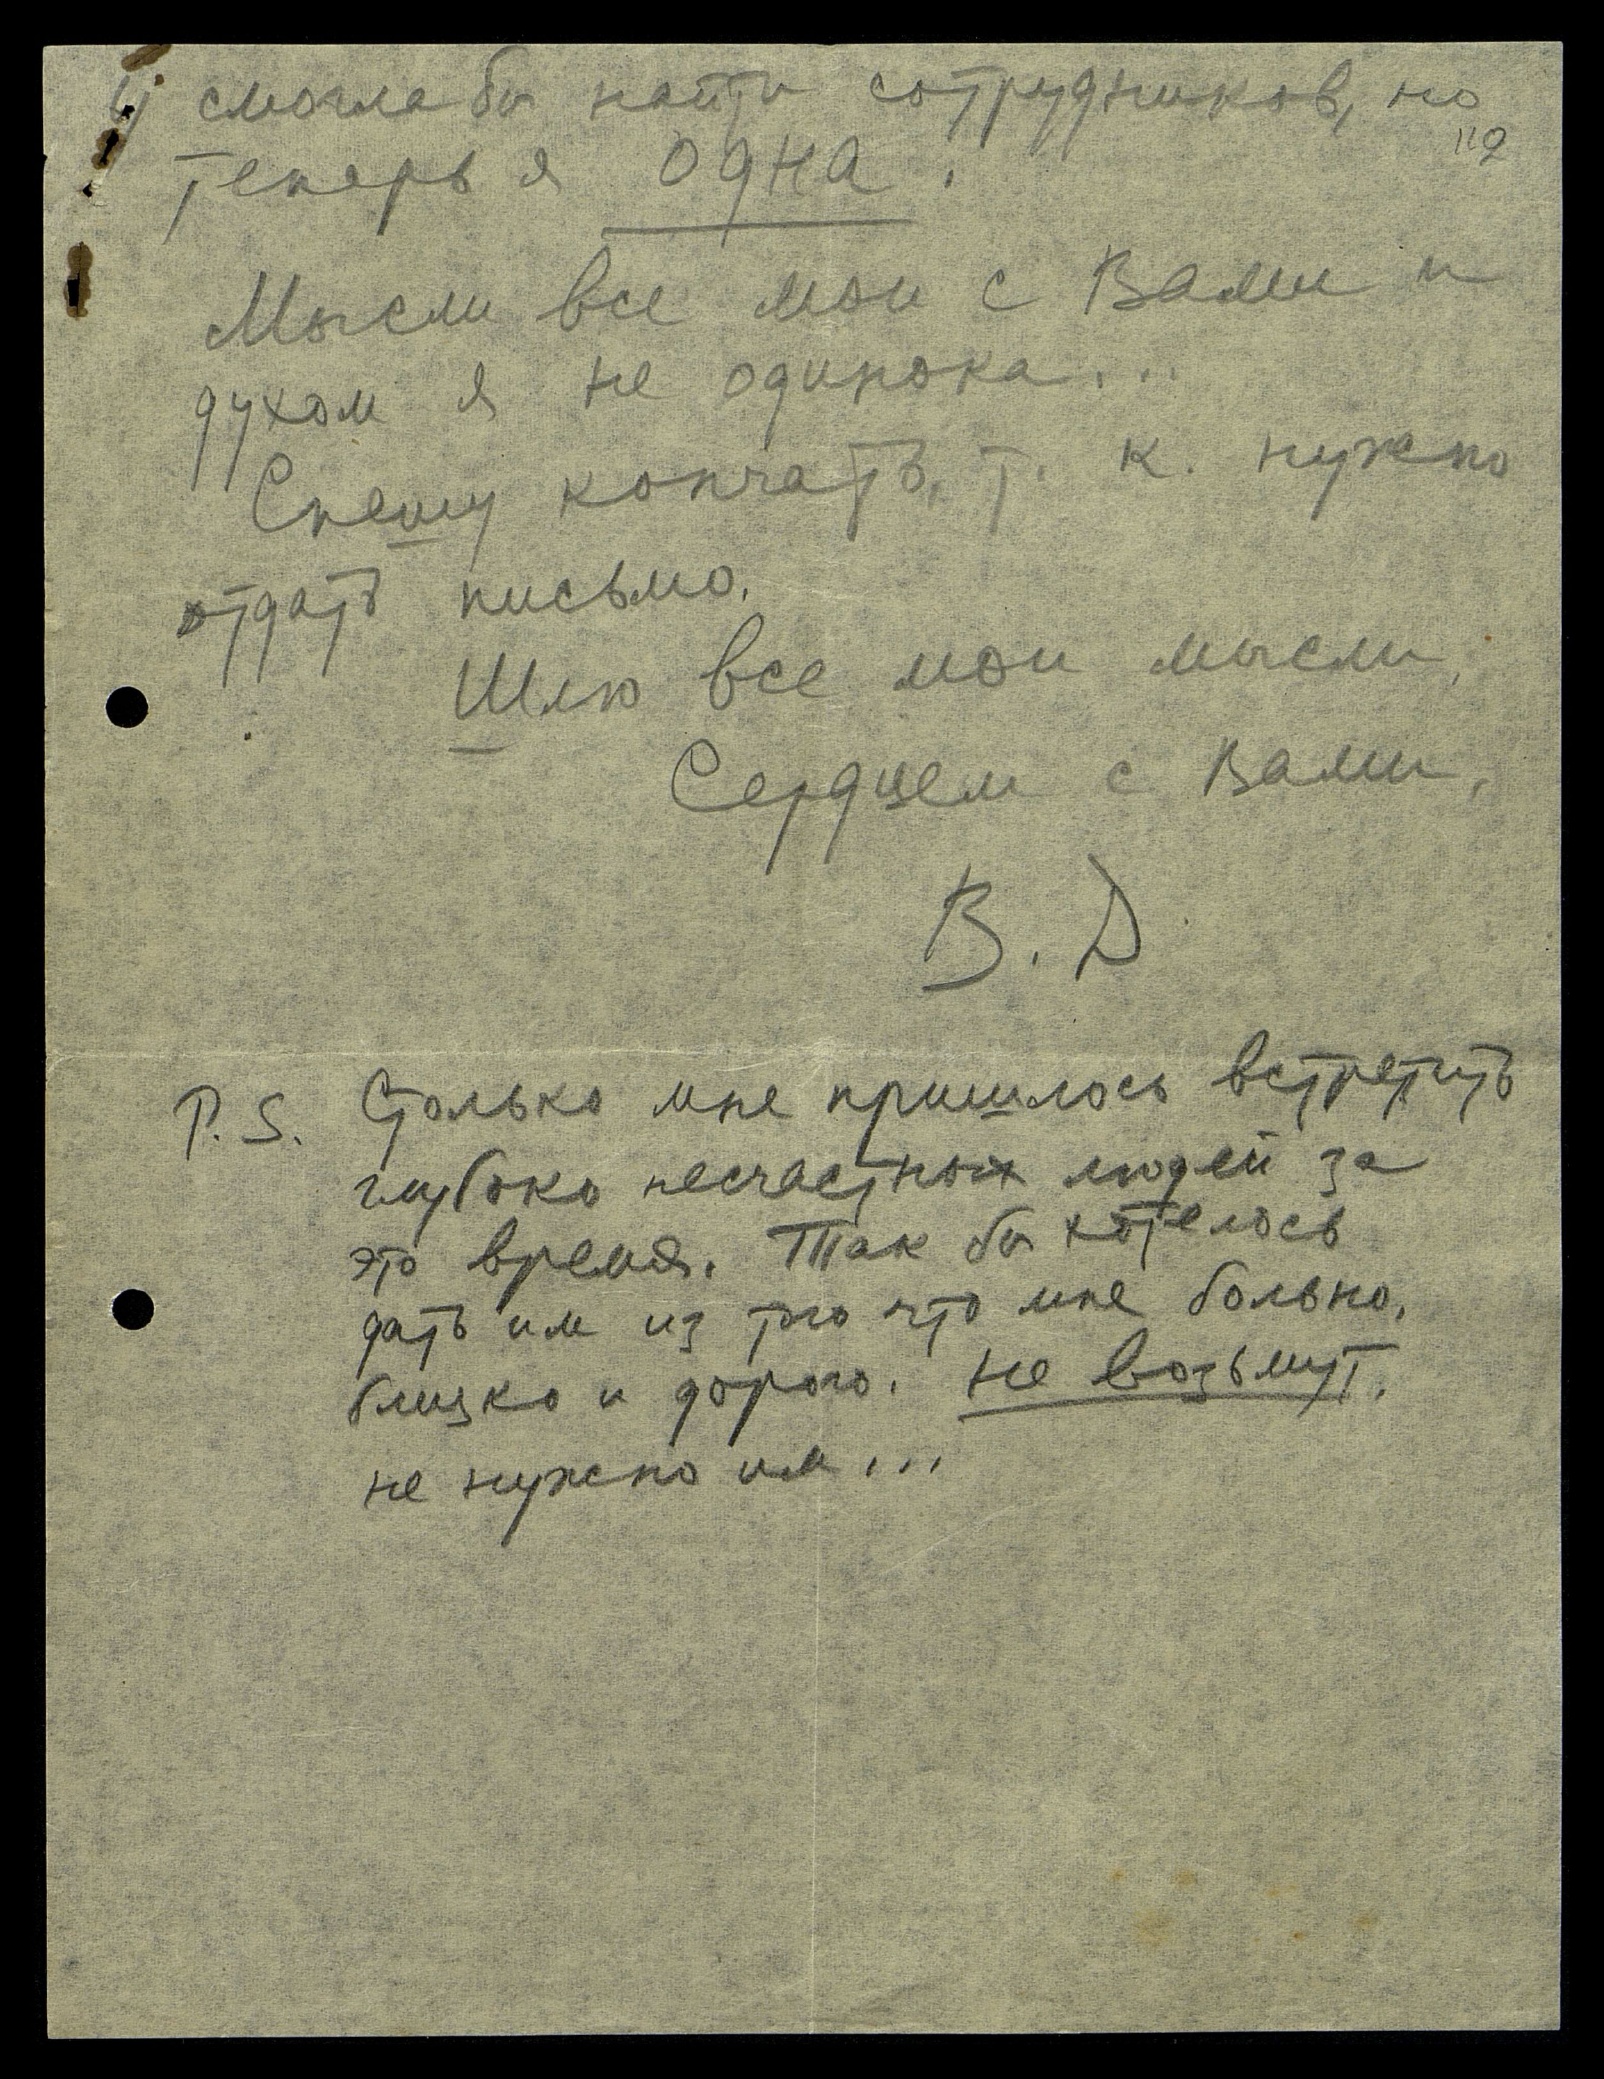 4) смогла бы найти сотрудников, но
112
теперь я одна.
Мысли все мои с Вами и
духом я не одинока...
Спешу кончать, т. к. нужно
отдать письмо.
Шлю все мои мысли,
Сердцем с Вами,
В. Д
P.S. Столько мне пришлось встретить
глубоко несчастных людей за
это время. Так бы хотелось
дать им из того что мне больно,
близко и дорого. Не возьмут,
не нужно им...